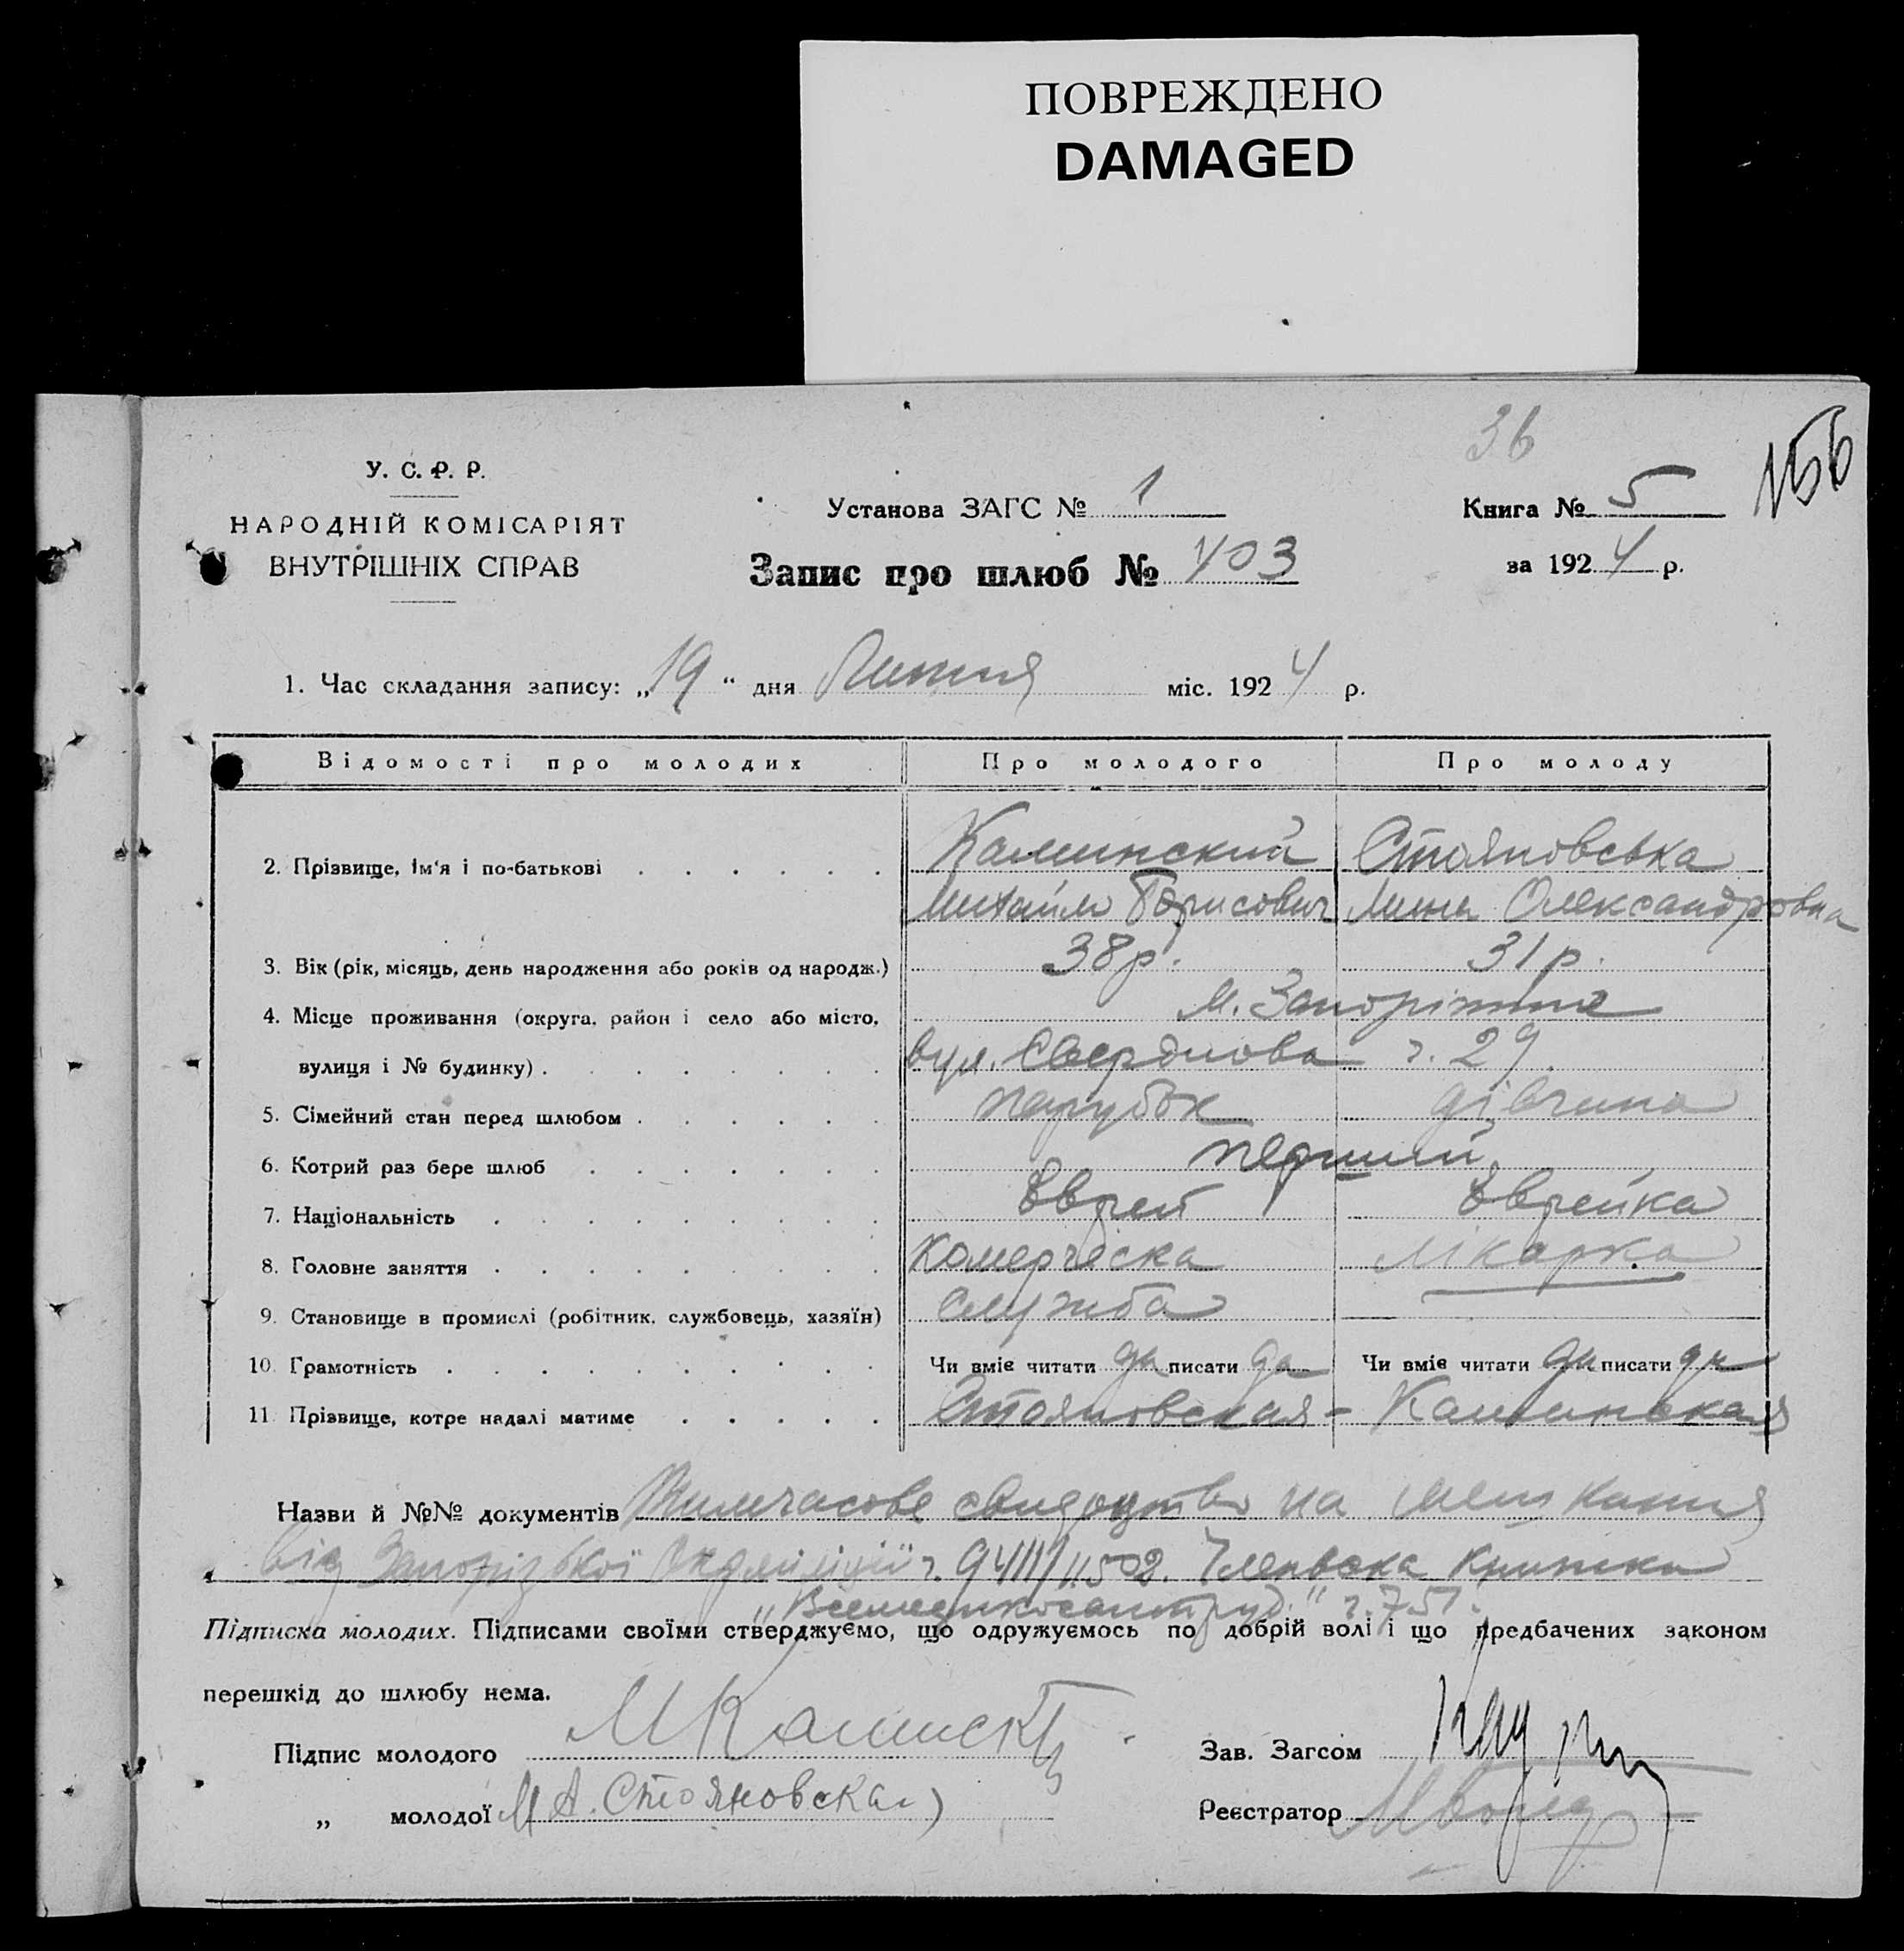 ПОВРЕЖДЕНО
DAMAGED
36
156
У. С. Р. Р.
НАРОДНІЙ КОМІСАРІЯТ
ВНУТРІШНІХ СПРАВ
Установа ЗАГС № 1
Книга № 5
Запис про шлюб № 403
за 1924 р.
1. Час складання запису: „19“ дня Липня міс. 1924 р.
Відомості про молодих Про молодого Про молоду
2. Прізвище, ім'я і по-батькові Каминский Стояновська
Михайло Борисович Мина Олександровна
3. Вік (рік, місяць, день народження або років од народж.) 38 р. 31 р.
4. Місце проживання (округа, район і село або місто, м. Запоріжжє
вулиця і № будинку) вул. Свердлова ч. 29
5. Сімейний стан перед шлюбом парубок дівчина
6. Котрий раз бере шлюб перший
7. Національність Єврей Єврейка
8. Головне заняття Комерческа Лікарка
9. Становище в промислі (робітник, службовець, хазяїн) служба
10. Грамотність Чи вміє читати да писати да Чи вміє читати да писати да
11. Прізвище, котре надалі матиме Стояновская - Каминская
Назви й №№ документів Тимчасове свидоцтво на мешкання
від Запорізької ч. Членвска книжка
„Всемедикосантруд“ ч. 751.
Підписка молодих. Підписами своїми стверджуємо, що одружуємось по добрій волі і що предбачених законом
перешкід до шлюбу нема.
Підпис молодого М Каминск
Зав. Загсом
„ молодої М А. Стояновская
Реєстратор